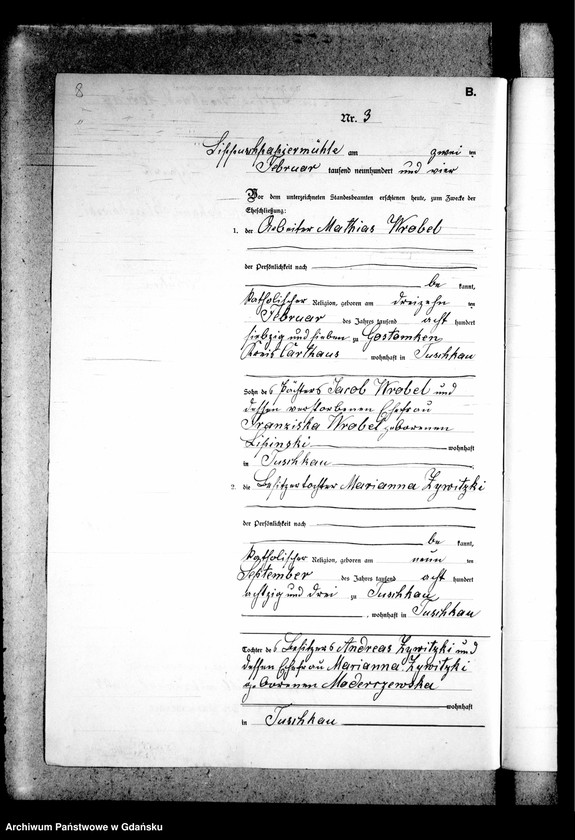 8
B.
Nr. 3
Lippuschpapiermühle am zwei ten
Februar tausend neunhundert und vier
Vor dem unterzeichneten Standesbeamten erschienen heute, zum Zwecke der
Eheschließung:
1. der Arbeiter Mathias Wrobel
der Persönlichkeit nach
be kannt,
katholischer Religion, geboren am dreizehn ten
Februar des Jahres tausend acht hundert
siebzig und sieben zu Gostomken
Kreis Carthaus wohnhaft in Tuschkau
Sohn des Pächters Jacob Wrobel und
dessen verstorbenen Ehefrau
Franziska Wrobel geborenen
Lipinski wohnhaft
in Tuschkau
2. die Besitzertochter Marianna Zywitzki
der Persönlichkeit nach
be kannt,
katholischer Religion, geboren am neun ten
September des Jahres tausend acht hundert
achtzig und drei zu Tuschkau
, wohnhaft in Tuschkau
Tochter des Besitzers Andreas Zywitzki und
dessen Ehefrau Marianna Zywitzki
geborenen Maderczewska
wohnhaft
in Tuschkau
Archiwum Państwowe w Gdańsku